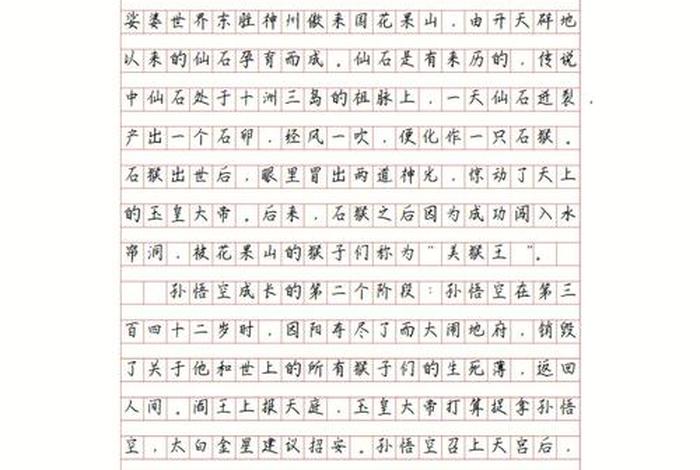 娑婆世界东胜神州傲来国花果山，由开天辟地
以来的仙石孕育而成。仙石是有来历的，传说
中仙石处于十洲三岛的祖脉上，一天仙石迸裂，
产出一个石卵，经风一吹，便化作一只石猴。
石猴出世后，眼里冒出两道神光，惊动了天上
的玉皇大帝。后来，石猴之后因为成功闯入水
帘洞，被花果山的猴子们称为“美猴王”。
孙悟空成长的第二个阶段：孙悟空在第三
百四十二岁时，因阳寿尽了而大闹地府，销毁
了关于他和世上的所有猴子们的生死薄，返回
人间。阎王上报天庭，玉皇大帝打算捉拿孙悟
空，太白金星建议招安。孙悟空召上天宫后，